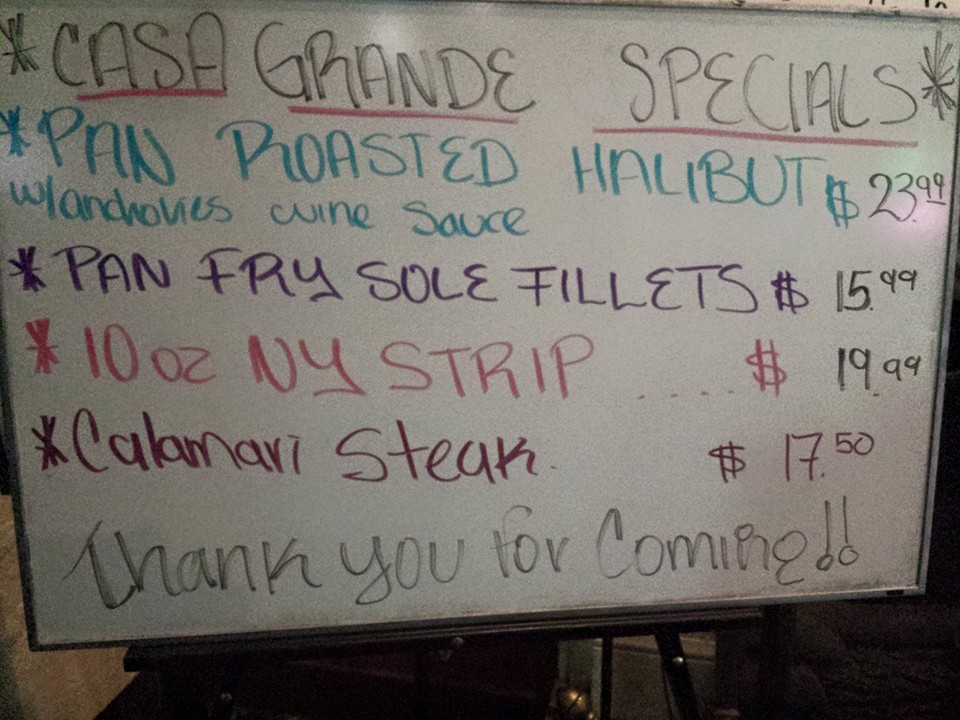 *CASA GRANDE SPECIALS*
*PAN ROASTED HALIBUT $ 23.99
w/anchovies wine Sauce
*PAN FRY SOLE FILLETS $ 15.99
*10 oz NY STRIP ..... $ 19.99
*Calamari Steak. $ 17.50
Thank you for Coming!!